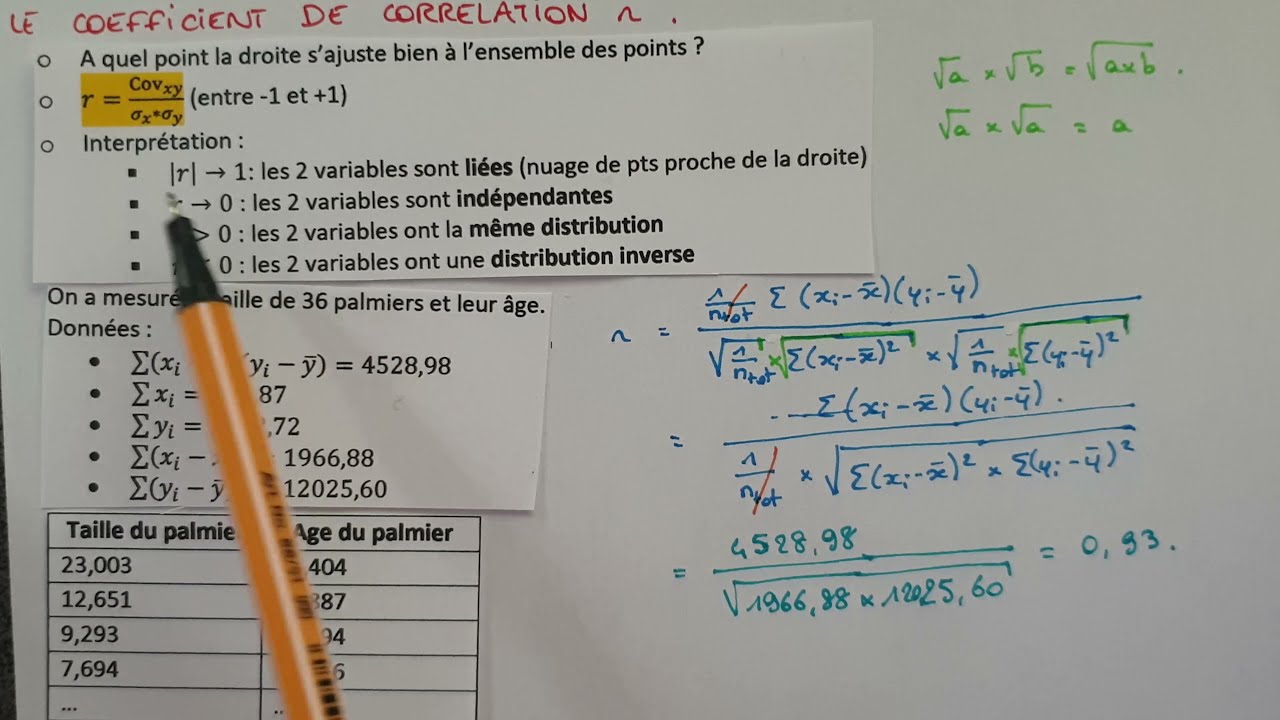 LE COEFFICIENT DE CORRELATION r.
A quel point la droite s'ajuste bien à l'ensemble des points ?
r = Cov_xy / σ_x*σ_y (entre -1 et +1)
Interprétation :
|r| → 1: les 2 variables sont liées (nuage de pts proche de la droite)
→ 0 : les 2 variables sont indépendantes
> 0 : les 2 variables ont la même distribution
0 : les 2 variables ont une distribution inverse
√a × √b = √a×b .
√a × √a = a
On a mesuré taille de 36 palmiers et leur âge.
Données :
∑(x_i (y_i − ȳ) = 4528,98
∑x_i = 87
∑y_i = ,72
∑(x_i − 1966,88
∑(y_i − ȳ 12025,60
Taille du palmie Age du palmier
23,003 404
12,651 387
9,293 94
7,694 6
... ..
r = 1/n_tot Σ(x_i-x̄)(y_i-ȳ) / √1/n_tot × √Σ(x_i-x̄)² × √1/n_tot × √Σ(y_i-ȳ)²
= Σ(x_i-x̄)(y_i-ȳ). / 1/n_tot × √Σ(x_i-x̄)² × Σ(y_i-ȳ)²
= 4528,98 / √1966,88 × 12025,60 = 0,93.